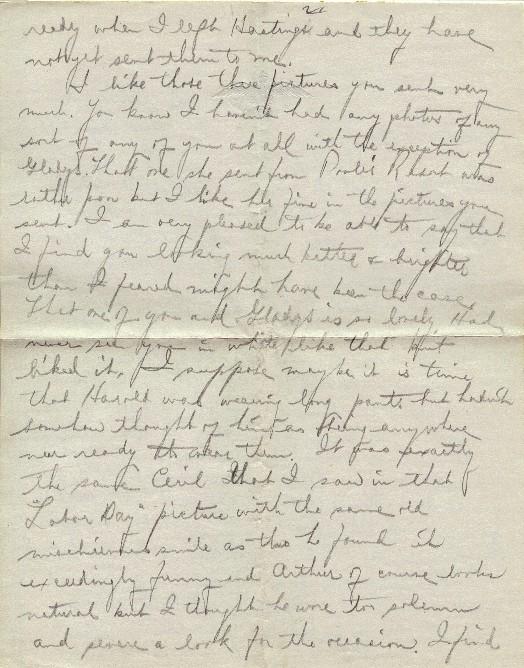 ready when I left Hastings and they have
not yet sent them to me.
I like those three pictures you sent very
much. You know I haven't had any photos of any
sort of any of you at all with the exception of
Gladys. That one she sent from Resort was
rather poor but I like her fine in the pictures you
sent. I am very pleased to be able to say that
I find you looking much better & brighter
than I feared might have been the case.
That one of you and Gladys is so lovely. Had
never seen you in white like that but
liked it. I suppose maybe it is time
that Harold was wearing long pants but hadn't
somehow thought of him as being anywhere
near ready to wear them. It was exactly
the same Cecil that I saw in that
"Labor Day" picture with the same old
mischievous smile as tho he found it
exceedingly funny and Arthur of course looks
natural but I thought he wore too solemn
and severe a look for the occasion. I find